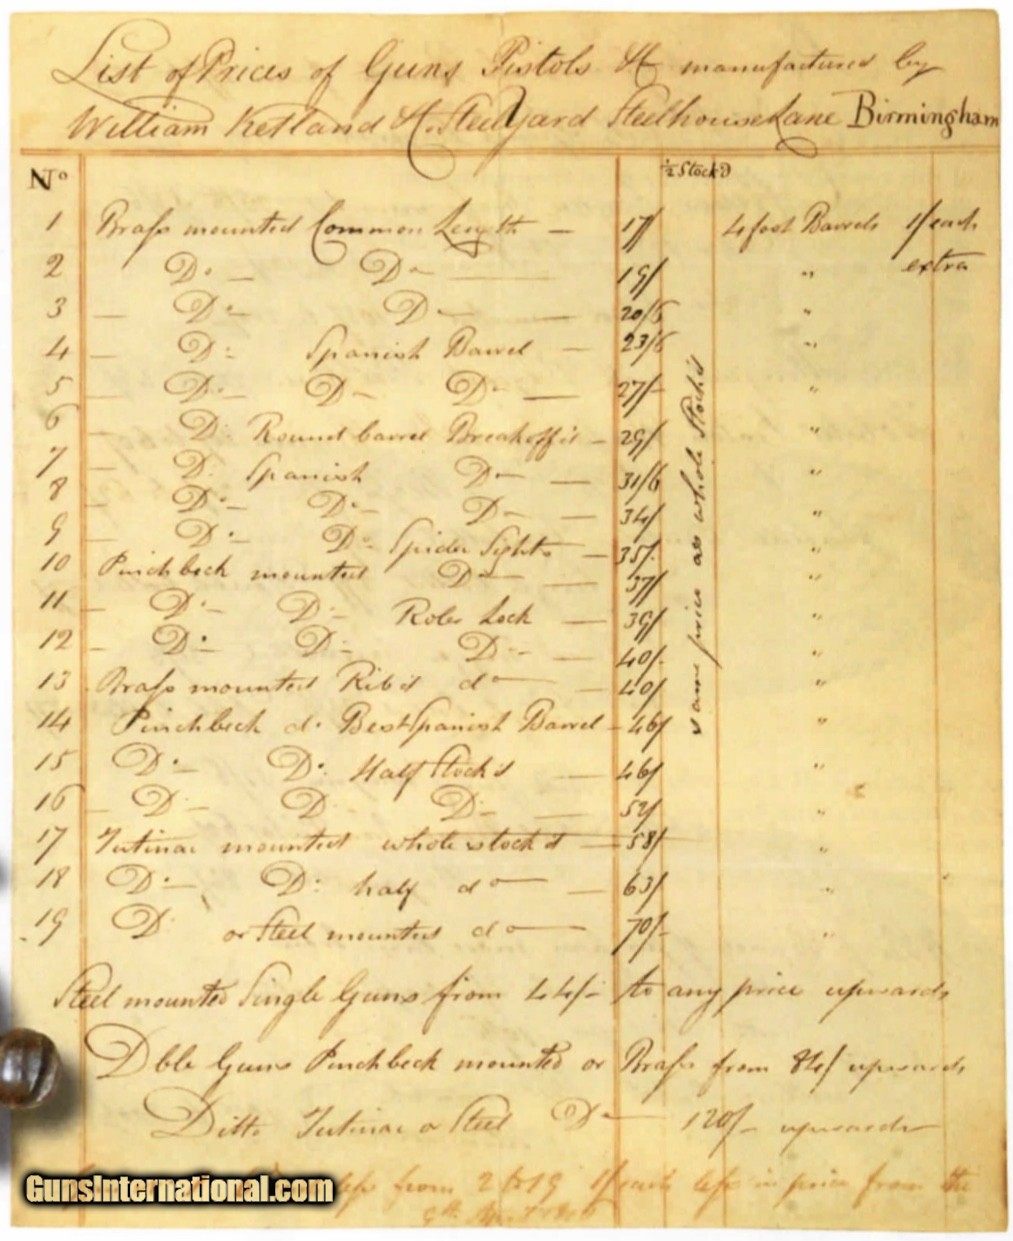 List of Prices of Guns Pistols &c manufactured by
William Ketland & Co. Steelyard Steelhouse Lane Birmingham
No ½ Stock'd
1 Brass mounted Common Length — 17/ 4 foot Barrels 1/ each
extra
2 Do — Do — 19/ "
3 — Do — Do — 20/6 "
4 — Do Spanish Barrel — 23/6 "
5 — Do — Do — Do — 27/- "
6 — Do Round barrel Breakoff'd — 29/ "
7 — Do Spanish Do — 31/6 "
8 — Do — Do — Do — 34/ "
9 — Do — Do Spider Sights — 35/- "
10 Pinchbeck mounted Do — 37/ "
11 — Do — Do — Roler Lock — 39/ "
12 — Do — Do — Do — 40/- "
13 Brass mounted Rib'd do — 40/ "
14 Pinchbeck do Best Spanish Barrel — 46/ "
15 Do — Do Half Stock'd — 46/ "
16 — Do — Do Do — 52/ "
17 Tutinac mounted whole stock'd — 58/ "
18 Do — Do half do — 63/ "
19 Do or Steel mounted do — 70/- "
same price as whole Stock'd
Steel mounted Single Guns from 44/- to any price upwards
Dble Guns Pinchbeck mounted or Brass from 84/ upwards
Ditto Tutinac or Steel Do — 120/- upwards
from 2 to 19 1/ each less in price from the
9th
GunsInternational.com